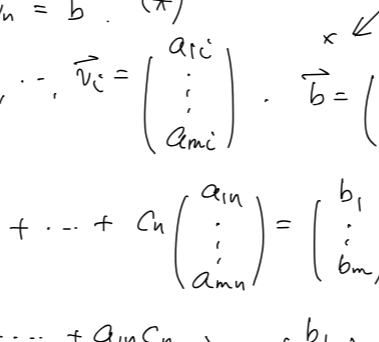 n = b . (*)
, ..., \vec{v}_i = \begin{pmatrix} a_{1i} \\ \vdots \\ a_{mi} \end{pmatrix} . \vec{b} = (
+ ... + c_n \begin{pmatrix} a_{1n} \\ \vdots \\ a_{mn} \end{pmatrix} = \begin{pmatrix} b_1 \\ \vdots \\ b_m
... + a_{1n} c_n b_1